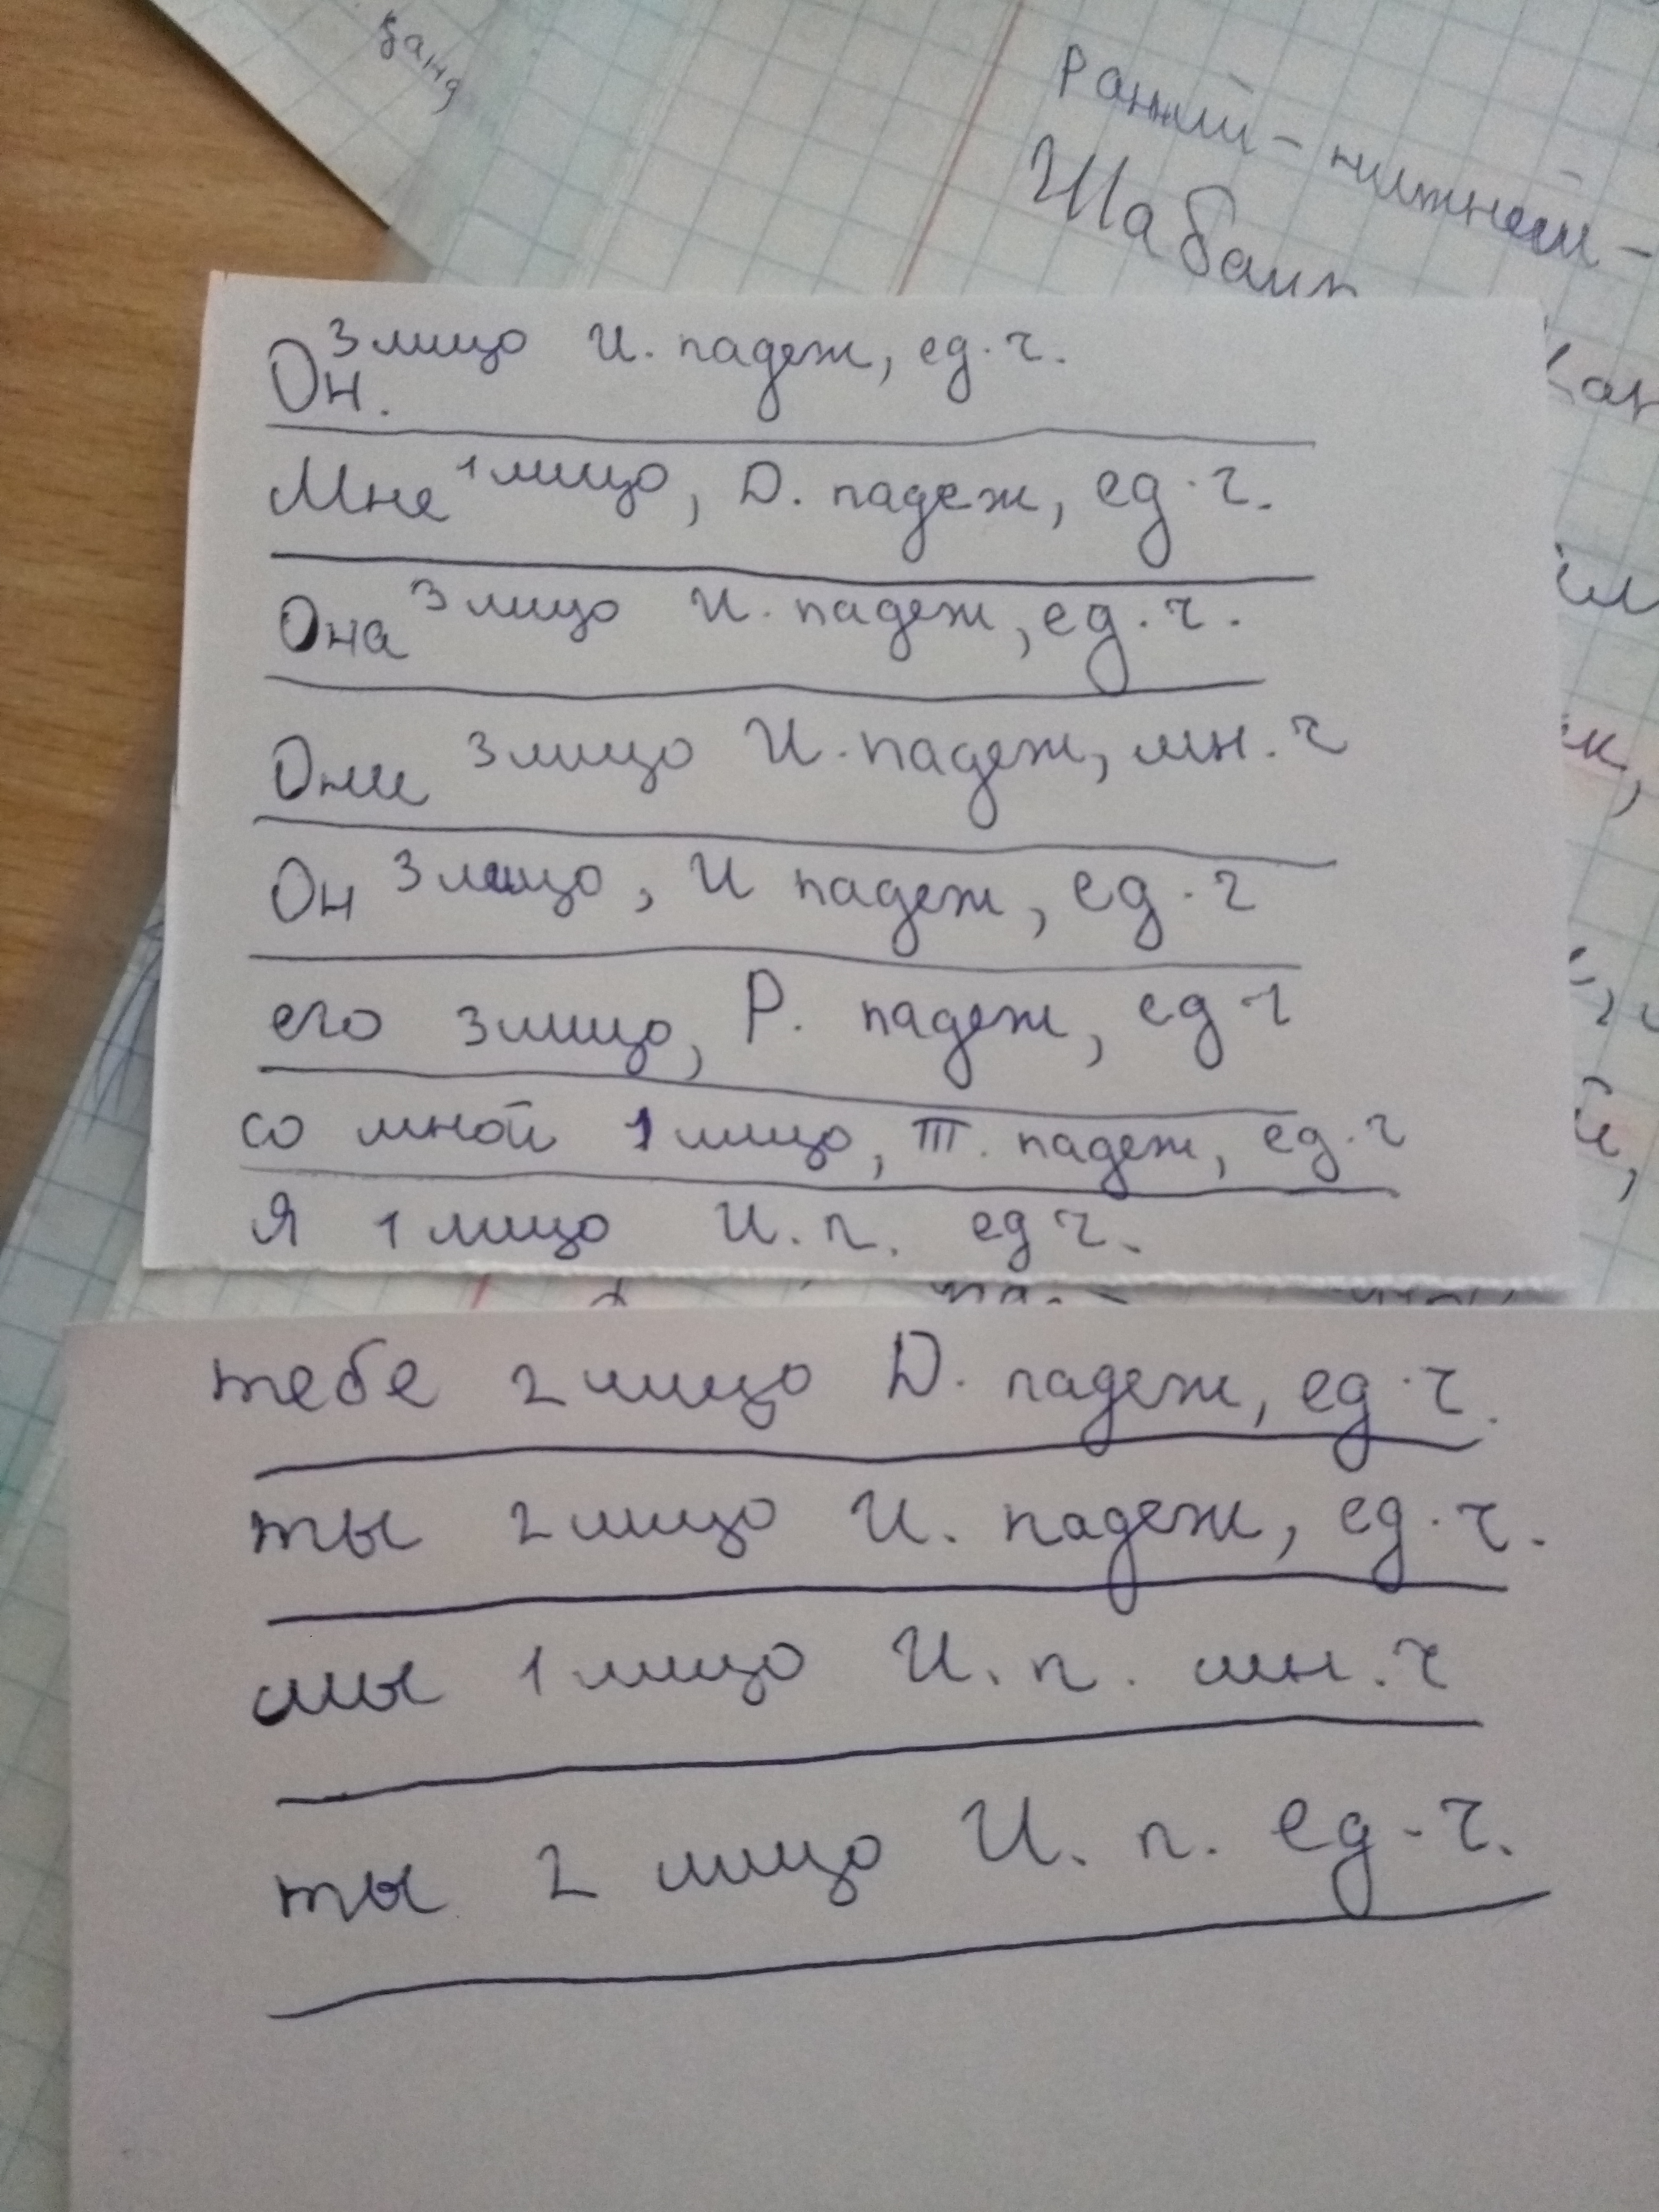 Ранний - нижний -
Он. 3 лицо И. падеж, ед. ч.
Мне 1 лицо, Д. падеж, ед. ч.
Она 3 лицо И. падеж, ед. ч.
Они 3 лицо И. падеж, мн. ч
Он 3 лицо, И падеж, ед. ч
его 3 лицо, Р. падеж, ед ч
со мной 1 лицо, Т. падеж, ед. ч
Я 1 лицо И. п. ед ч.
тебе 2 лицо Д. падеж, ед. ч.
ты 2 лицо И. падеж, ед. ч.
мы 1 лицо И. п. мн. ч
ты 2 лицо И. п. ед. ч.